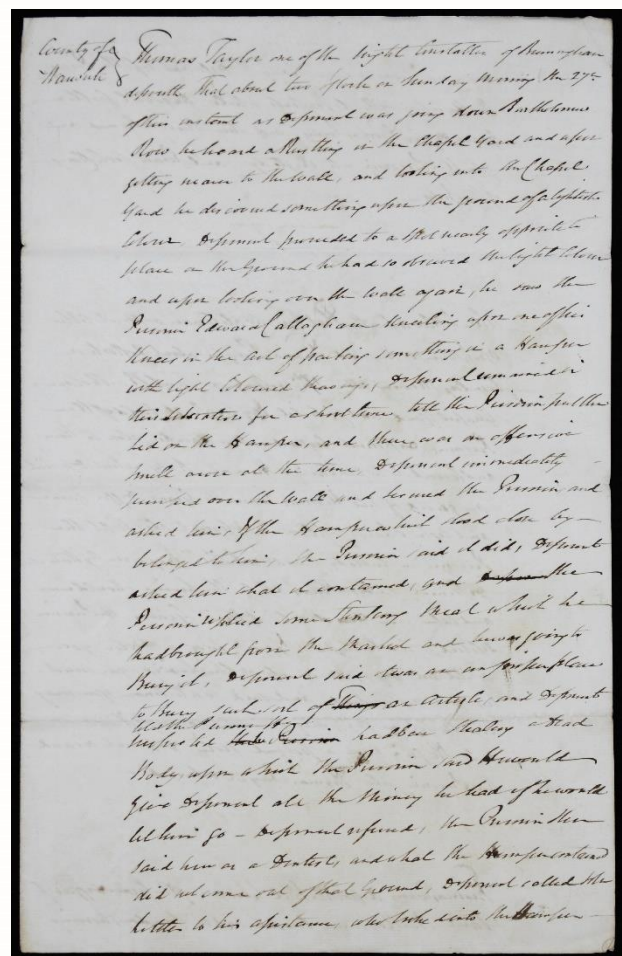 County of } Thomas Taylor one of the Night Constables of Birmingham
Warwick } deposeth that about two o'Clock on Sunday Morning the 27th
of this instant as Deponent was going down Bartholomew
Row he heard a Rustling in the Chapel Yard and upon
getting nearer to the Wall, and looking into the Chapel
Yard he discovered something upon the ground of a lightish
Colour, Deponent proceeded to a spot nearly opposite to
place on the Ground he had so observed the light Colour
and upon looking over the Wall again, he saw the
Prisoner Edward Callaghan kneeling upon one of his
Knees in the act of packing something in a Hamper
with light Coloured, Deponent remained in
this for a short time, till the Prisoner put the
Lid on the Hamper, and there was an offensive
smell arose at the time, Deponent immediately
jumped over the Wall and secured the Prisoner and
asked him, If the Hamper which stood close by
belonged to him, the Prisoner said it did, Deponent
asked him what it contained, and the
Prisoner replied some Stinking Meat which he
had brought from the Market and he was going to
Bury it, Deponent said it was an improper place
to Bury such sort of Things an Article, and Deponent
suspected the Prisoner had been stealing a Dead
Body, upon which the Prisoner said He would
give Deponent all the Money he had if he would
let him go - Deponent refused, the Prisoner then
said he was a Dentist, and what the Hamper contained
did not come out of that Ground, Deponent called
to his assistance, who looked into the Hamper